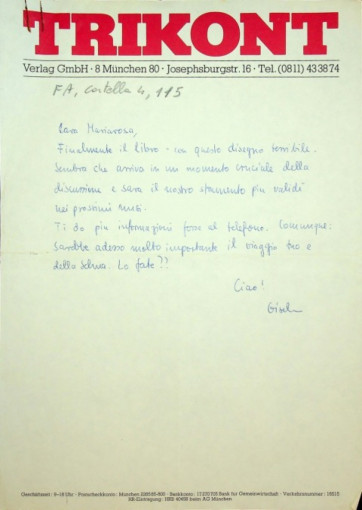 TRIKONT
Verlag GmbH · 8 München 80 · Josephsburgstr. 16 · Tel. (0811) 433874
FA, cartella 4, 115
Cara Mariarosa,
Finalmente il libro - con questo disegno terribile.
Sembra che arriva in un momento cruciale della
discussione e sarà il nostro strumento più valido
nei prossimi mesi.
Ti do più informazioni forse al telefono. Comunque:
sarebbe adesso molto importante il viaggio tuo e
della Selma. Lo fate??
Ciao!
Gisela
Geschäftszeit: 9-18 Uhr · Postscheckkonto: München · Bankkonto: Bank für Gemeinwirtschaft · Verkehrsnummer:
HR-Eintragung: HRB beim AG München